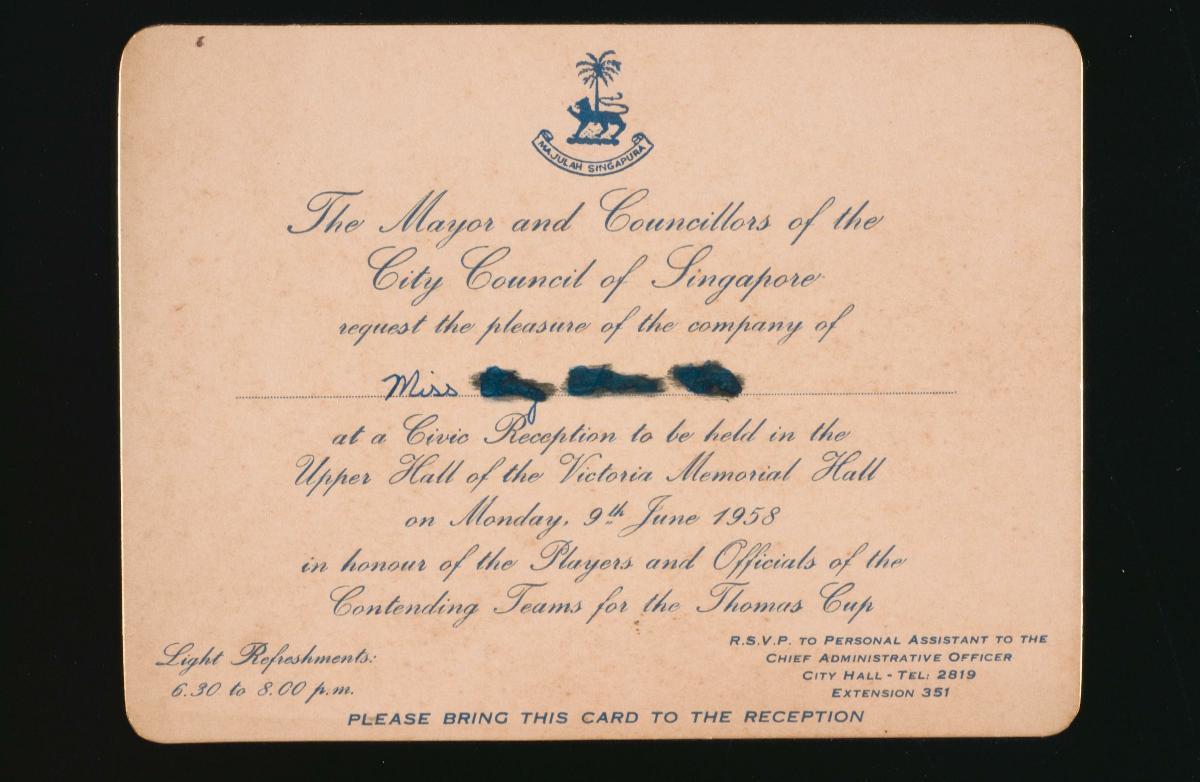 6
MAJULAH SINGAPURA
The Mayor and Councillors of the
City Council of Singapore
request the pleasure of the company of
Miss
at a Civic Reception to be held in the
Upper Hall of the Victoria Memorial Hall
on Monday, 9th June 1958
in honour of the Players and Officials of the
Contending Teams for the Thomas Cup
Light Refreshments:
6.30 to 8.00 p.m.
R.S.V.P. TO PERSONAL ASSISTANT TO THE
CHIEF ADMINISTRATIVE OFFICER
CITY HALL - TEL: 2819
EXTENSION 351
PLEASE BRING THIS CARD TO THE RECEPTION